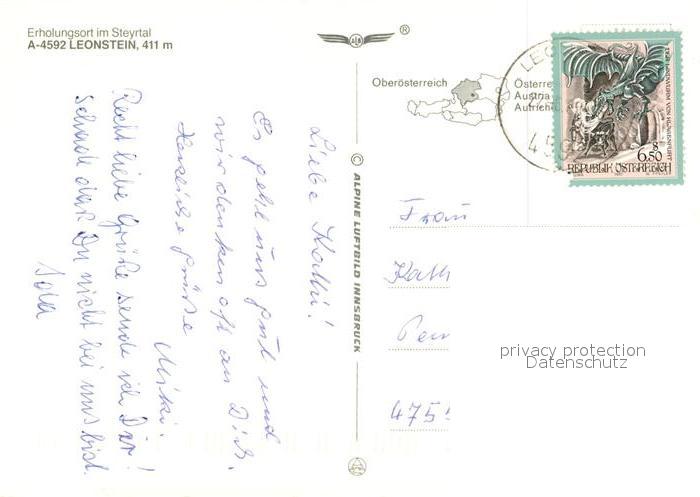 Erholungsort im Steyrtal
A-4592 LEONSTEIN, 411 m
®
Oberösterreich
Österre
Austria
Autrich
LEO
45
DER LINDWURM VON KLAGENFURT
S
6.50
REPUBLIK ÖSTERREICH
© ALPINE LUFTBILD INNSBRUCK
Liebe Kathi!
Es geht uns gut und
wir denken oft an Dich.
Herzliche Grüße
Mitzi.
Recht liebe Grüße sende ich Dir!
Schade daß Du nicht bei uns bist.
Frau
Kath
475
privacy protection
Datenschutz